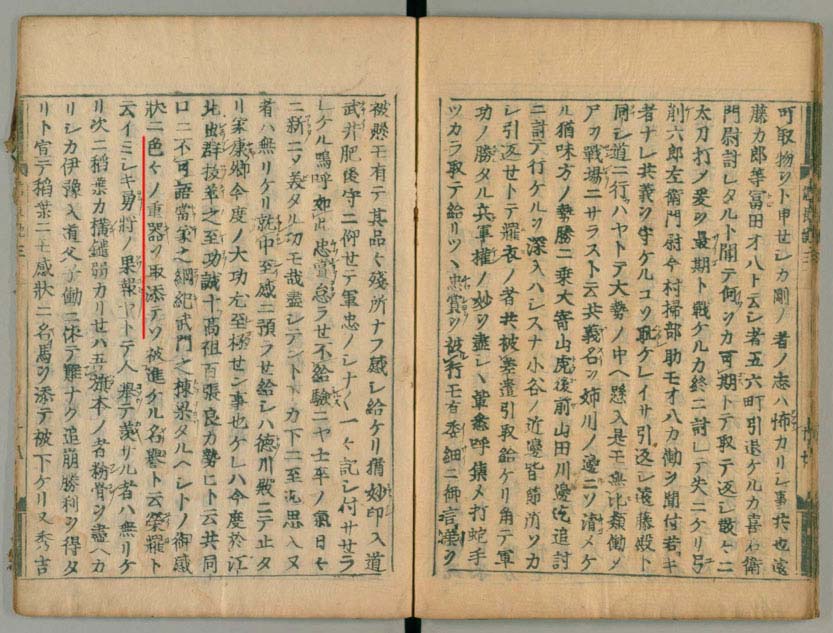 可取物ヲト申セシカ剛ノ者ノ志ハ怖カリシ事共也遠
藤力郎等富田才八ト云シ者五六町引退ケルカ喜右衛
門尉討レタルト聞テ何ヲカ可期トテ取テ返シ散々ニ
太刀打ノ爰ヲ最期ト戦ケルカ終ニ討レテ失ニケリ弓
削六郎左衛門尉今村掃部助モオ八カ働ヲ聞付若キ
者ナレ共義ヲ守ケルコソ耻ケレイサ引返シ遠藤殿ト
同シ道ニ行ハヤトテ大勢ノ中ヘ懸入是モ無比類働メ
アタ戦場ニサラスト云共義名ヲ姉川ノ邊ニソ清メケ
ル猶味方ノ勢勝ニ乗大寄山虎後前山田川邊迄追討
ニ討テ行ケルヲ深入ハシスナ小谷ノ近邊皆節所ソカ
シ引返セトテ羅衣ノ者共被差遣引取給ケリ角テ軍
功ノ勝タル兵軍權ノ妙ヲ盡シヽ輩悉呼集メ打蛇手
ツカラ取テ給リツヽ忠賞ヲ被行モ有委細ニ御言葉ヲ
被懸モ有テ其品々殘所ナフ感シ給ケリ猶妙印入道
武井肥後守ニ仰セテ軍忠ノシナ〱一々記シ付サセラ
レケル嗚呼如此忠賞怠ラセ不給驗ニヤ士卒ノ氣日々
ニ新ニソ義タル切モ哉盡シテント下カ下ニ至迄思入ヌ
者ハ無リケリ就中至感ニ預ラせ給シハ徳川殿ニテ止タ
リ家康卿今度ノ大功尤至極せン事也ケレハ今度於江
北出群抜萃之至功誠十高祖百張良カ勢ヒト云共同
口ニ不可語當家之綱紀武門之棟梁タルヘシトノ御感
狀ニ色々ノ重器ヲ取添テソ被進ケル名譽ト云榮羅ト
云イミシキ勇將ノ果報ヤトテ人擧テ羨サル者ハ無リケ
リ次ニ稲葉カ横鑓弱カリせハ五ノ旗本ノ者粉骨ヲ盡ヘカ
リシカ伊豫入道父子働ニ依テ難ナク追崩勝利ヲ得タ
リト宣テ稻葉ニモ感狀ニ名馬ヲ添テ被下ケリ又秀吉